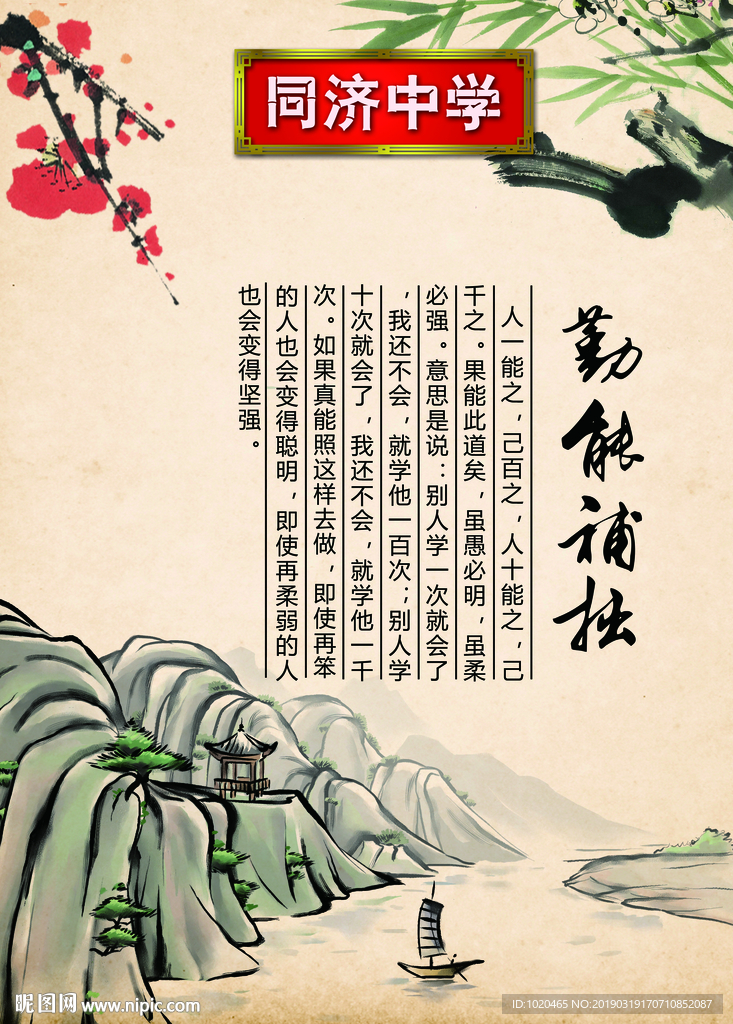 同济中学
勤能补拙
人一能之，己百之，人十能之，己
千之。果能此道矣，虽愚必明，虽柔
必强。意思是说：别人学一次就会了
，我还不会，就学他一百次；别人学
十次就会了，我还不会，就学他一千
次。如果真能照这样去做，即使再笨
的人也会变得聪明，即使再柔弱的人
也会变得坚强。
昵图网 www.nipic.com
ID:1020465 NO:20190319170710852087